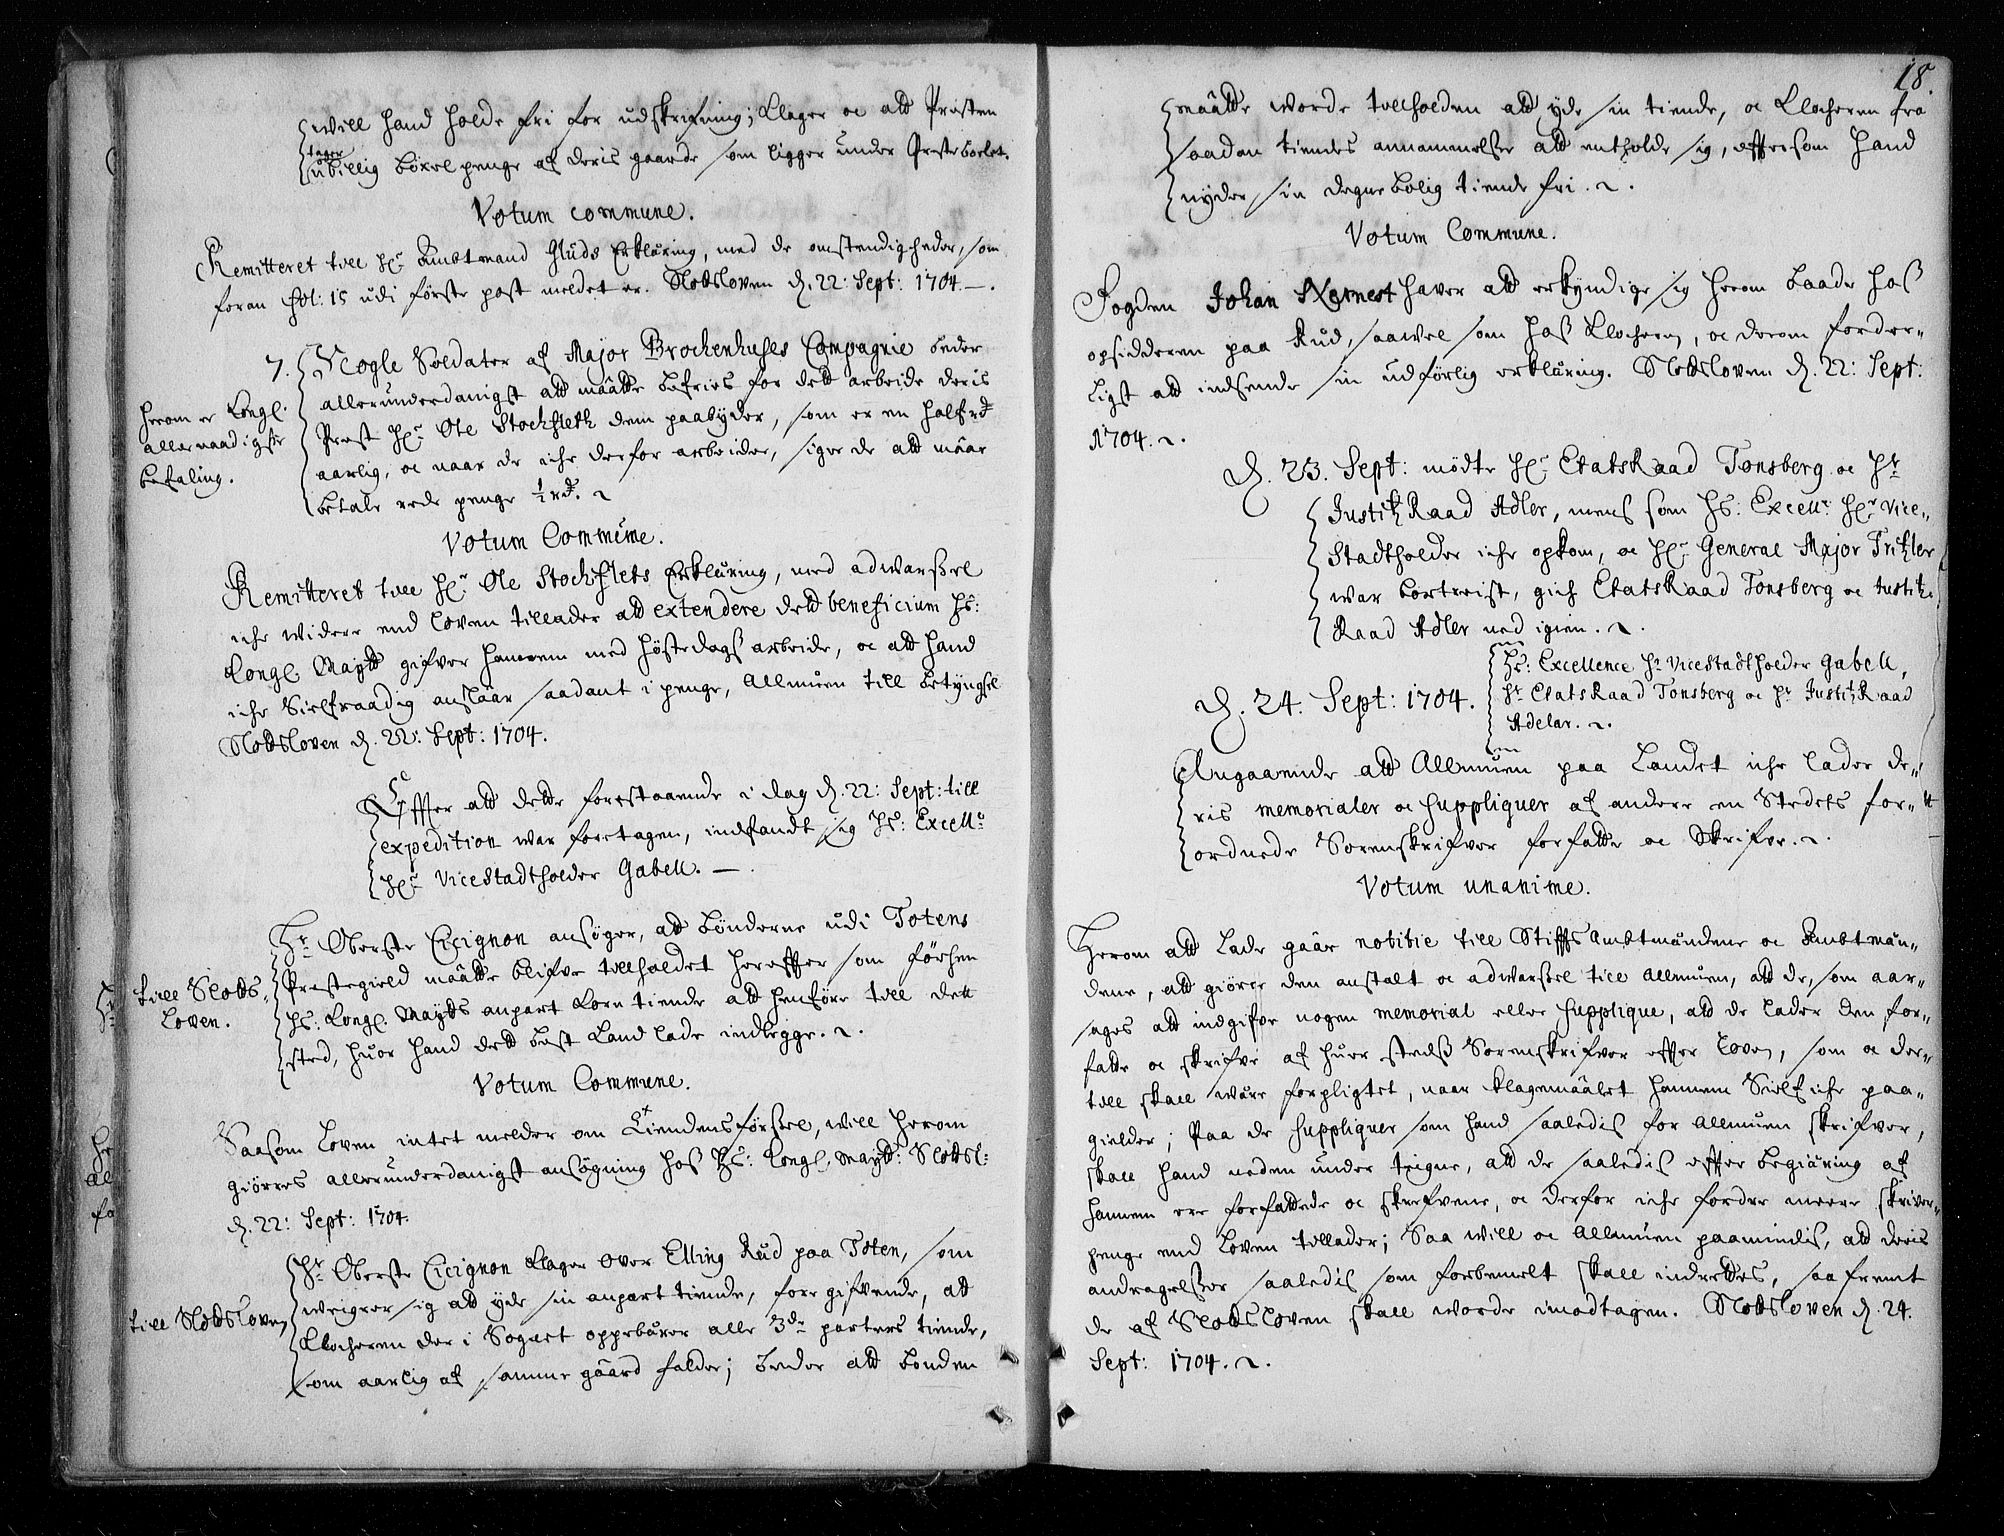 will hand holde fri for udskrifning; Klager oc att Præsten
tager
ubillig böxel penge af deris gaarde som ligger under Præstebolet.
Votum commune.
Remitteret till Hr Ambtmand Glüds Erklæring, med de omstendigheder, som
foran fol: 15 udi første post meldet er. Slotzloven d. 22: Sept: 1704.—.
7. Nogle Soldater af Major Brochenhuses Compagnie beder
allerunderdanigst att maatte befries for dett arbeide deris
Herom er Kongl.
allernaadigste
befaling.
Præst Hr Ole Stochfleth dem paabyder, som er en half rd
aarlig, oc naar de iche derfor arbeider, siger de att maa
betale rede penge ½ rd.
Votum Commune.
Remitteret till Hr Ole Stochflets Erklæring, med adwarsel
iche widere end loven tillader att extendere dett beneficium Hs:
Kongl. Maytt gifver hannem med høstedags arbeide, oc att hand
iche Sielfraadig anslaar saadant i penge, Allmuen till betyngsel
Slotzloven d. 22: Sept: 1704.
Effter att dette forestaaende i dag d. 22: Sept: till
expedition war foretagen, indfandt sig Hs: Excell:
Hr Vice Stadtholder Gabell.—
Hr Oberste Cicignon ansøger, att bønderne udi Totens
Præstegield maatte blifve tillholdet hereffter som førhen
till Slotz
Loven.
Hs: Kongl. Maytts anpart Korn tiende att henføre till dett
sted, huor hand dett best kand lade indlegge.
Votum Commune.
Saasom Loven intet melder om Tiendens førsel, will herom
giørres allerunderdanigst ansøgning hos Hs: Kongl. Maytt: Slotzl:
d. 22: Sept: 1704.
Hr Oberste Cicignon Klager over Elling Rud paa Toten, som
weigrer sig att yde sin anpart tiende, foregifvende, att
till Slotzloven
Klocheren der i Sognet oppebærer alle 3de parters tiende,
som aarlig af samme gaard falder; beder att bonden
18.
maatte worde tillholden att yde sin tiende, oc Klocheren fra
saadan tiendes annammelse att entholde sig, effersom hand
nyder sin degnebolig tiende fri.
Votum Commune.
Fogden Johan Nernest haver att erkyndige sig herom baade hoß
opsidderen paa Rud, saavel som hoß Klocheren, oc derom forder-
ligst att indsende sin udførlig erklæring. Slotzloven d. 22: Sept:
1704.
D. 23. Sept: mødte Hr Etats Raad Tonsberg oc Hr
Justitz Raad Adler, mens som Hs: Excell: Hr Vice-
Stadtholder iche opkom, oc Hr General Major Tritzler
war bortreist, gich Etats Raad Tonsberg oc Justitz
Raad Adler ned igien.
D. 24. Sept: 1704.
Hs: Excellence Hr Vice Stadtholder Gabell,
Hr Etats Raad Tonsberg oc Hr Justitz Raad
Adelar.
Angaaende att Allmuen paa Landet iche lader de-
ris memorialer oc Suppliquer af andere en Stedets for-
ordnede Sorenskrifver forfatte oc Skrifve.
Votum unanime.
Herom att lade gaar notitie till Stiffts Ambtmændene oc Ambtmæn-
dene, att giøre den anstalt oc adwarsel till Allmuen, att de, som aar-
sages att indgifve nogen memorial eller Supplique, att de lader den for-
fatte oc skrifve af huer steds Sorenskrifver effter Loven, som oc der-
till skall wære forpligtet, naar klagemaalet hannem Sielf iche paa-
gielder; Paa de Suppliquer som hand saaledis for Allmuen skrifver,
skall hand neden under teigne, att de saaledis effter begiæring af
hannem ere forfattede oc skrefvene, oc derfor iche fordre meere skriver-
penge end Loven tillader; Saa will oc Allmuen paamindis, att deris
andragelser saaledis som forbemelt skall indrettes, saa fremt
de af Slotzloven skall worde imodtagen. Slotzloven d. 24.
Sept: 1704.